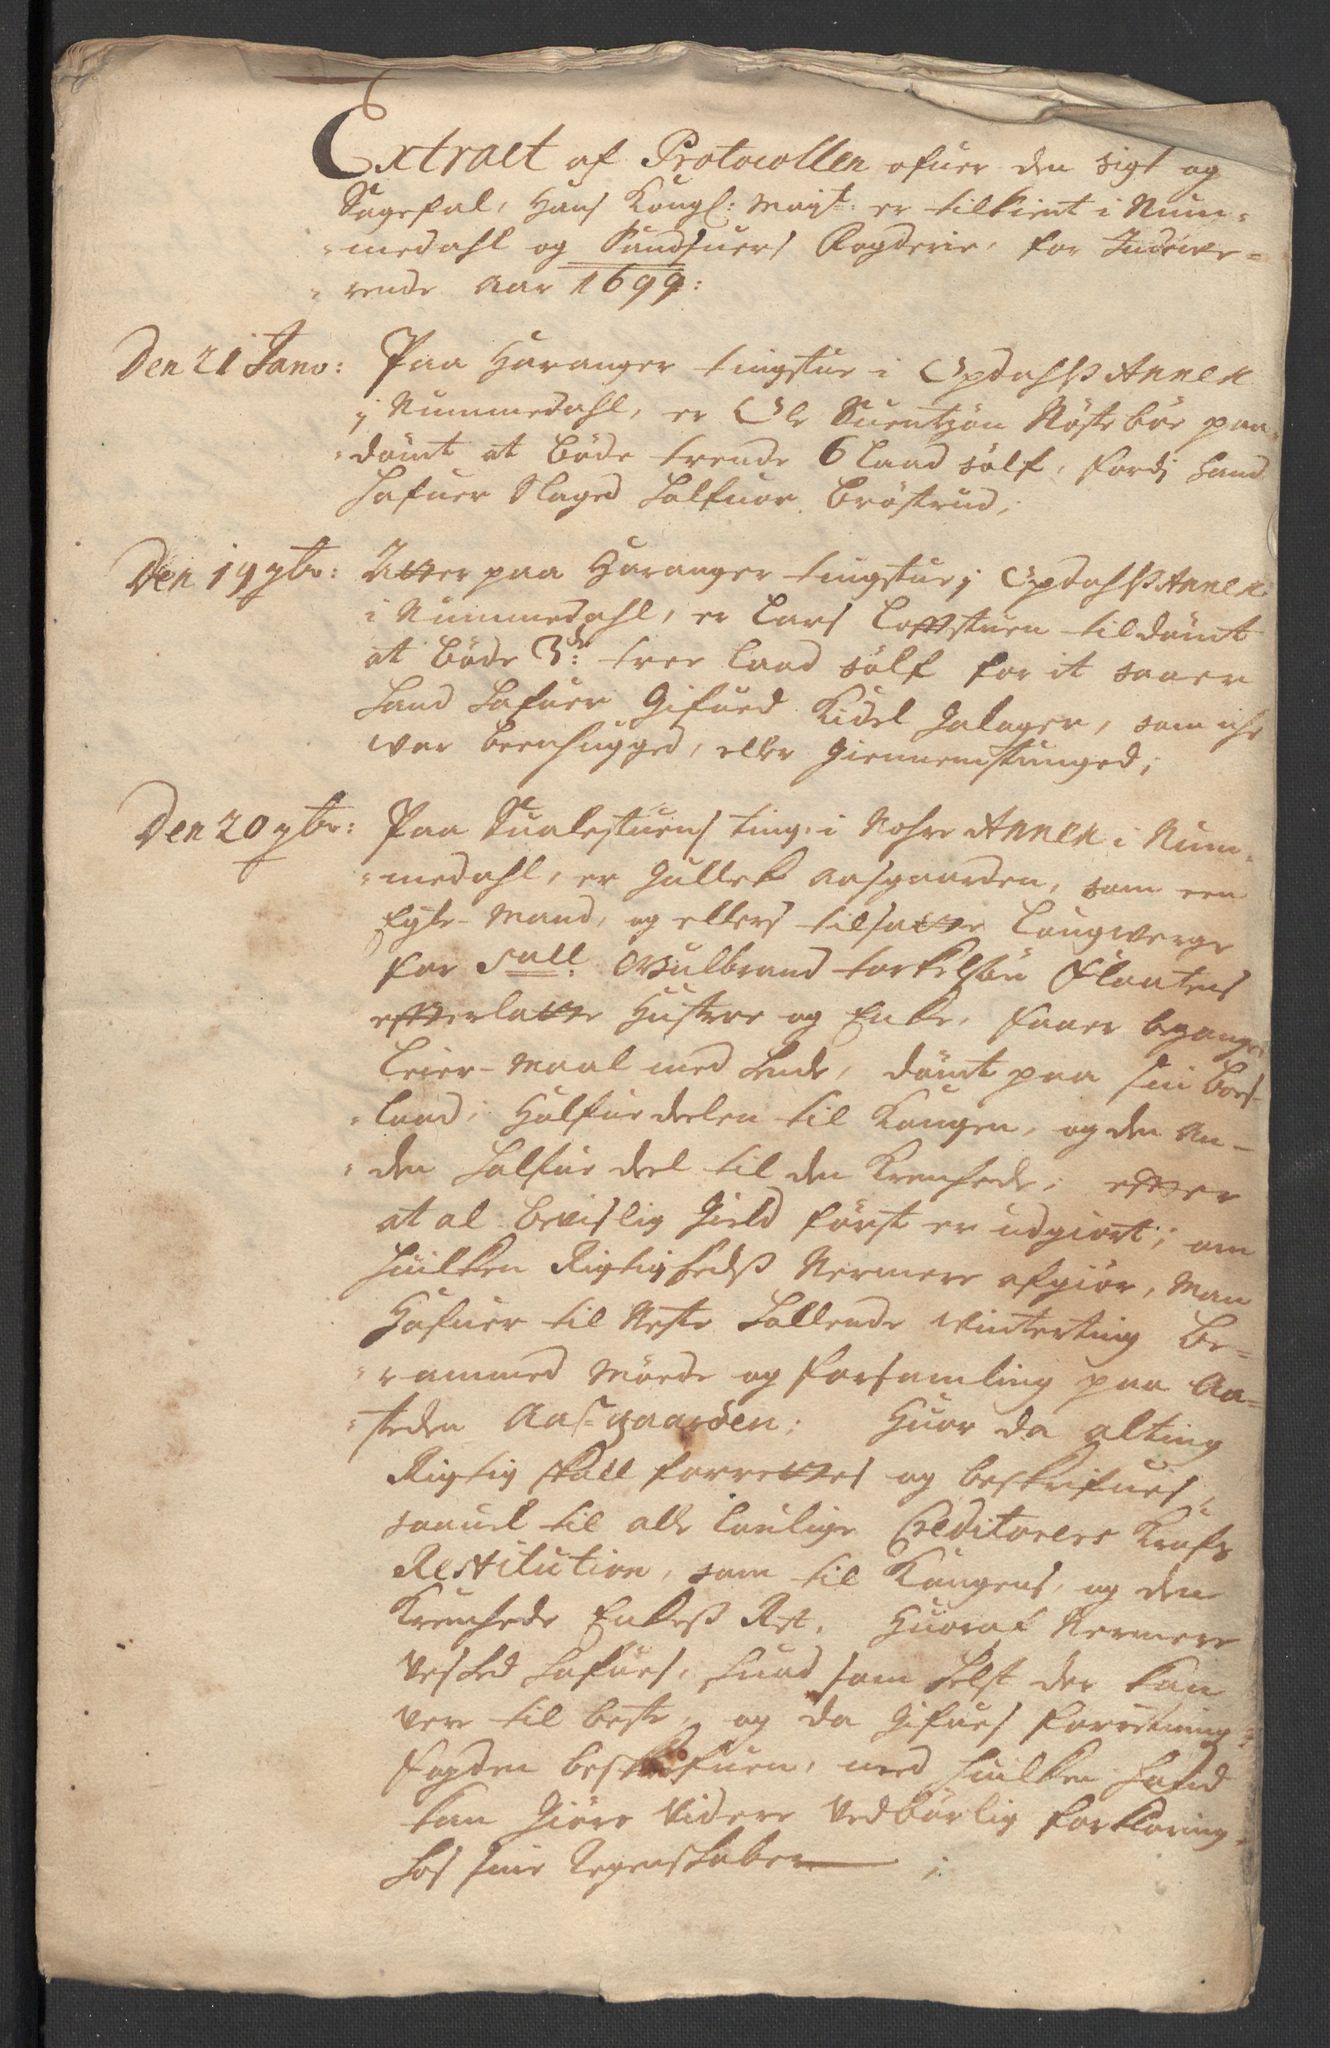 Extract af Protocollen ofuer den sigt og
Sagefal, Hans Kongl: Mayt: er tilkient i Num-
-medahl og Sandsuers Fogderie, for Indewe-
-rende Aar 1699:
Den 21 Janv: Paa Haranger tingstue i Opdahlß Annex
j Nummedahl, er Ole Suentzøn Nøstebøe paa-
-dømt at bøde trende 6 Laad sølf, fordj hand
hafuer Slaged Halfuor Brøstrud;
Den 19 7br: Atter paa Haranger tingstue j Opdahlß Annex
i Nummedahl, er Lars Loftstuen tildømt
at bøde 3de: trer Laad sølf for it saaer
hand hafuer Gifued Kidel Jalager, som iche
war beenhugged, eller Giennemstunged;
Den 20 7br: Paa Sualestuens ting: i Nohre Annex i Num-
-medahl, er Gullek Aasgaarden, som een
Egte-Mand, og ellers tilsatte Laugwerge
for Sall: Gulbrand torkelsøn Flaatens
efterlatte Hustrue og Enke, faaer begangne
Leier-Maal med hende, dømt paa sin Boes-
-laad; Halfue deelen til Kongen, og den An-
-den halfue deel til den Krenchede; efter
at al bevislig Gield først er udgiort; om
huilken Rigtighedß Nermere afgiør, Man
Hafuer til Neste hollende Winterting be-
-rammed Møede og forsamling paa Aa-
-steden Aasgaarden; Huor da alting
Rigtig skall forrettes og beskrifues,
saauel til alle Laulige Creditorers Krafs
Restitution, som til Kongens, og den
Krenchede Enkeß Ret, Huoraf Nermere
beskeed hafues, huad som helst der kan
vere til beste, og da Gifues forretning
Fogden beskrefuen, med huilken hand
kan Giøre videre Vedbørlig forklaring
hos sine Regenskaber;